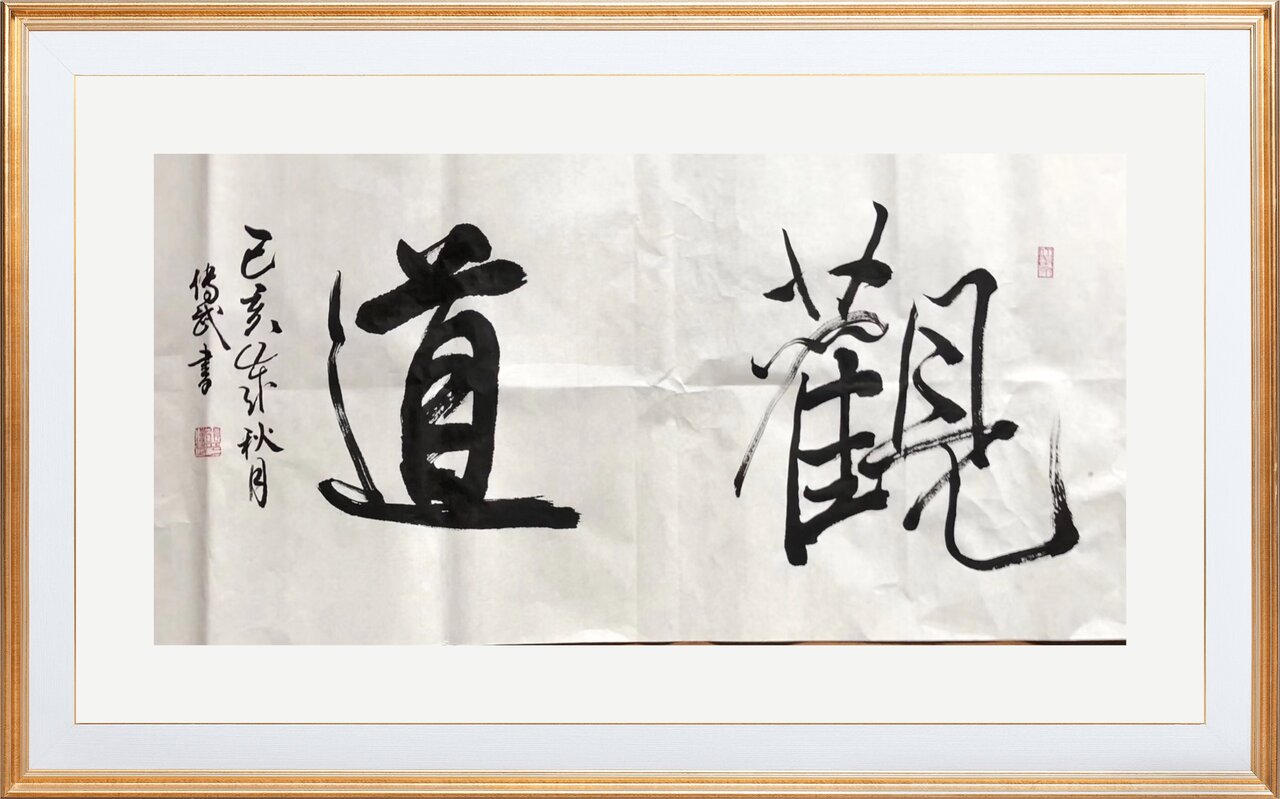 觀道
己亥 秋月
傳武書